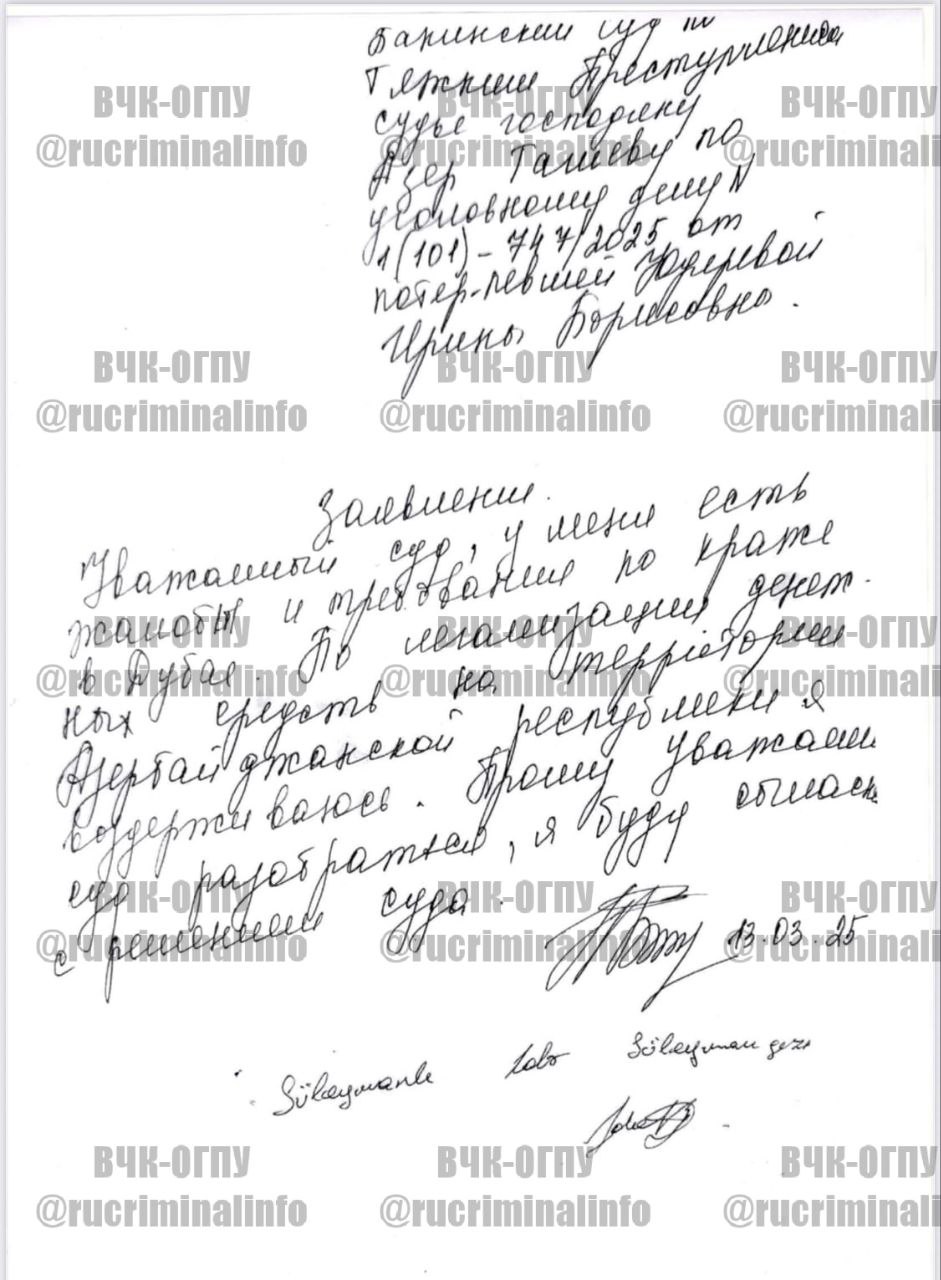 Бакинский суд по
Тяжким Преступлениям
судье господину
Азер Тагиеву по
уголовному делу N
1(101)-747/2025 от
потер-певшей
Ирины Борисовны.
ВЧК-ОГПУ ВЧК-ОГПУ ВЧК-ОГПУ
@rucriminalinfo @rucriminalinfo @rucriminali
ВЧК-ОГПУ ВЧК-ОГПУ ВЧК-ОГПУ
@rucriminalinfo @rucriminalinfo @rucriminali
Заявление.
Уважаемый суд, у меня есть
жалобы и требования по краже
в Дубае. По легализации денеж-
ных средств на территории
Азербайджанской республики я
воздерживаюсь. Прошу уважаем
суд разобраться, я буду согласн
с решением суда.
13.03.25
ВЧК-ОГПУ ВЧК-ОГПУ ВЧК-ОГПУ
@rucriminalinfo @rucriminalinfo @rucriminali
ВЧК-ОГПУ ВЧК-ОГПУ ВЧК-ОГПУ
@rucriminalinfo @rucriminalinfo @rucriminali
Süleymanlı Süleyman qızı
ВЧК-ОГПУ ВЧК-ОГПУ ВЧК-ОГПУ
@rucriminalinfo @rucriminalinfo @rucriminali